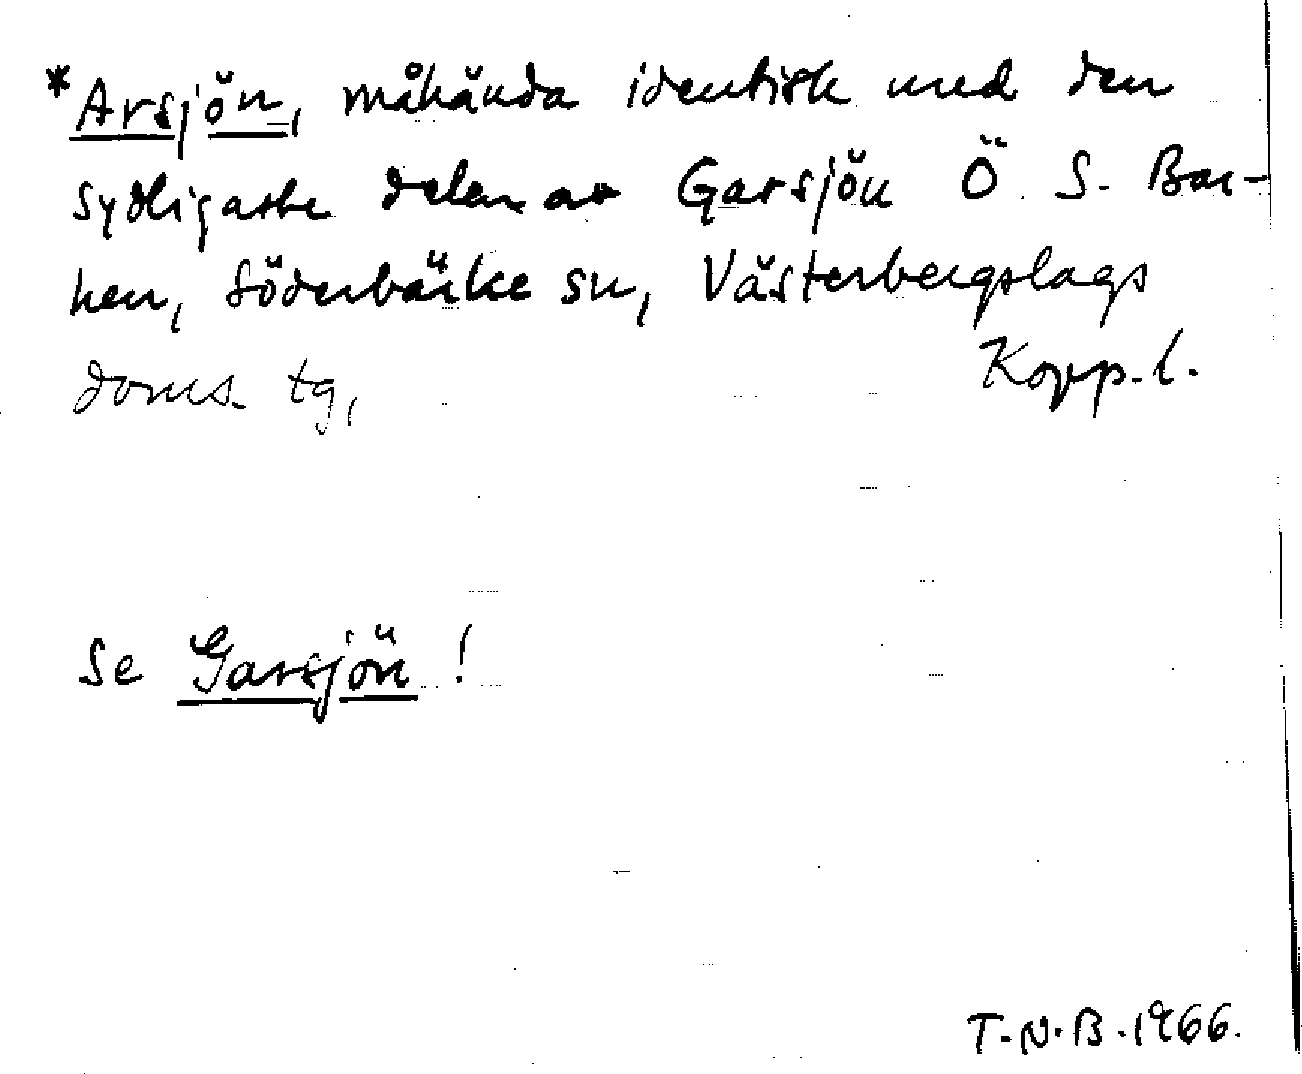 *Arsjön, måhända identisk med den
sydligaste delen av Garsjön Ö. S. Bar-
ken, Söderbärke sn, Västerbergslags
doms. tg, Kopp. l.
Se Garsjön!
T.N.B. 1966.